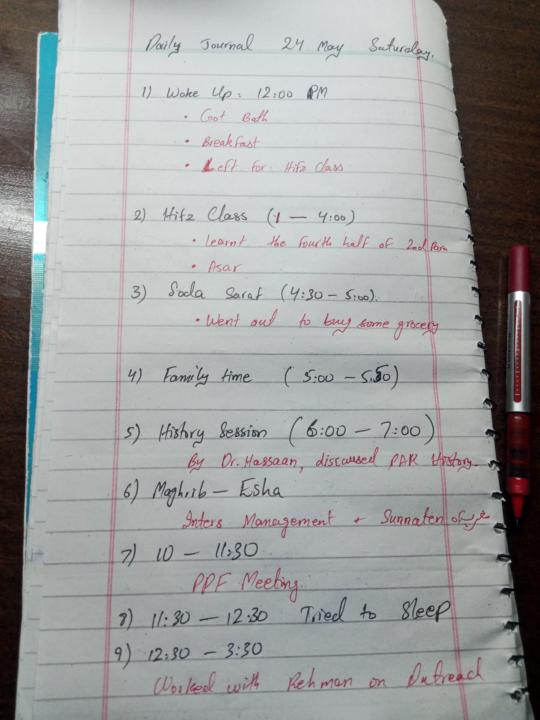 Daily Journal 24 May Saturday.
1) Woke Up: 12:00 PM
• Got Bath
• Breakfast
• Left for Hifz Class
2) Hifz Class (1 — 4:00)
• Learnt the fourth half of 2nd Para
• Asar
3) Soda Saraf (4:30 – 5:00).
• Went out to buy some grocery
4) Family time (5:00 – 5:50)
5) History Session (6:00 – 7:00)
By Dr. Hassaan, discussed PAK History
6) Maghrib – Esha
Inters Management + Sunnaten
7) 10 – 11:30
PPF Meeting
8) 11:30 – 12:30 Tried to Sleep
9) 12:30 – 3:30
Worked with Rehman on Outreach